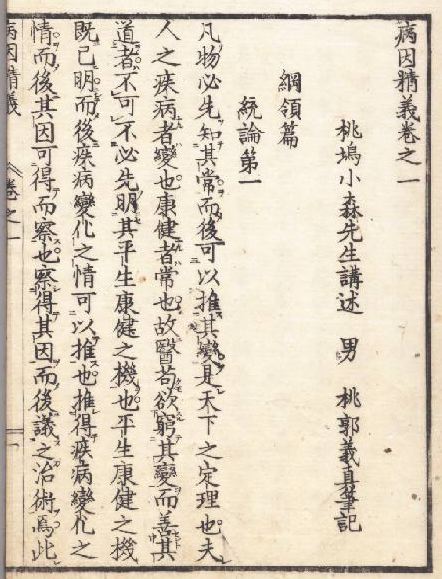 病因精義卷之一
桃塢小森先生講述　男　桃郭義真筆記
綱領篇
統論第一
凡物必先知其常而後可以推其變是天下之定理也夫
人之疾病者變也康健者常也故醫苟欲窮其變而善其
道者不可不必先明其平生康健之機也平生康健之機
既已明而後疾病變化之情可以推也推得疾病變化之
情而後其因可得而察也察得其因而後議之治術焉此
病因精義　卷之一　一